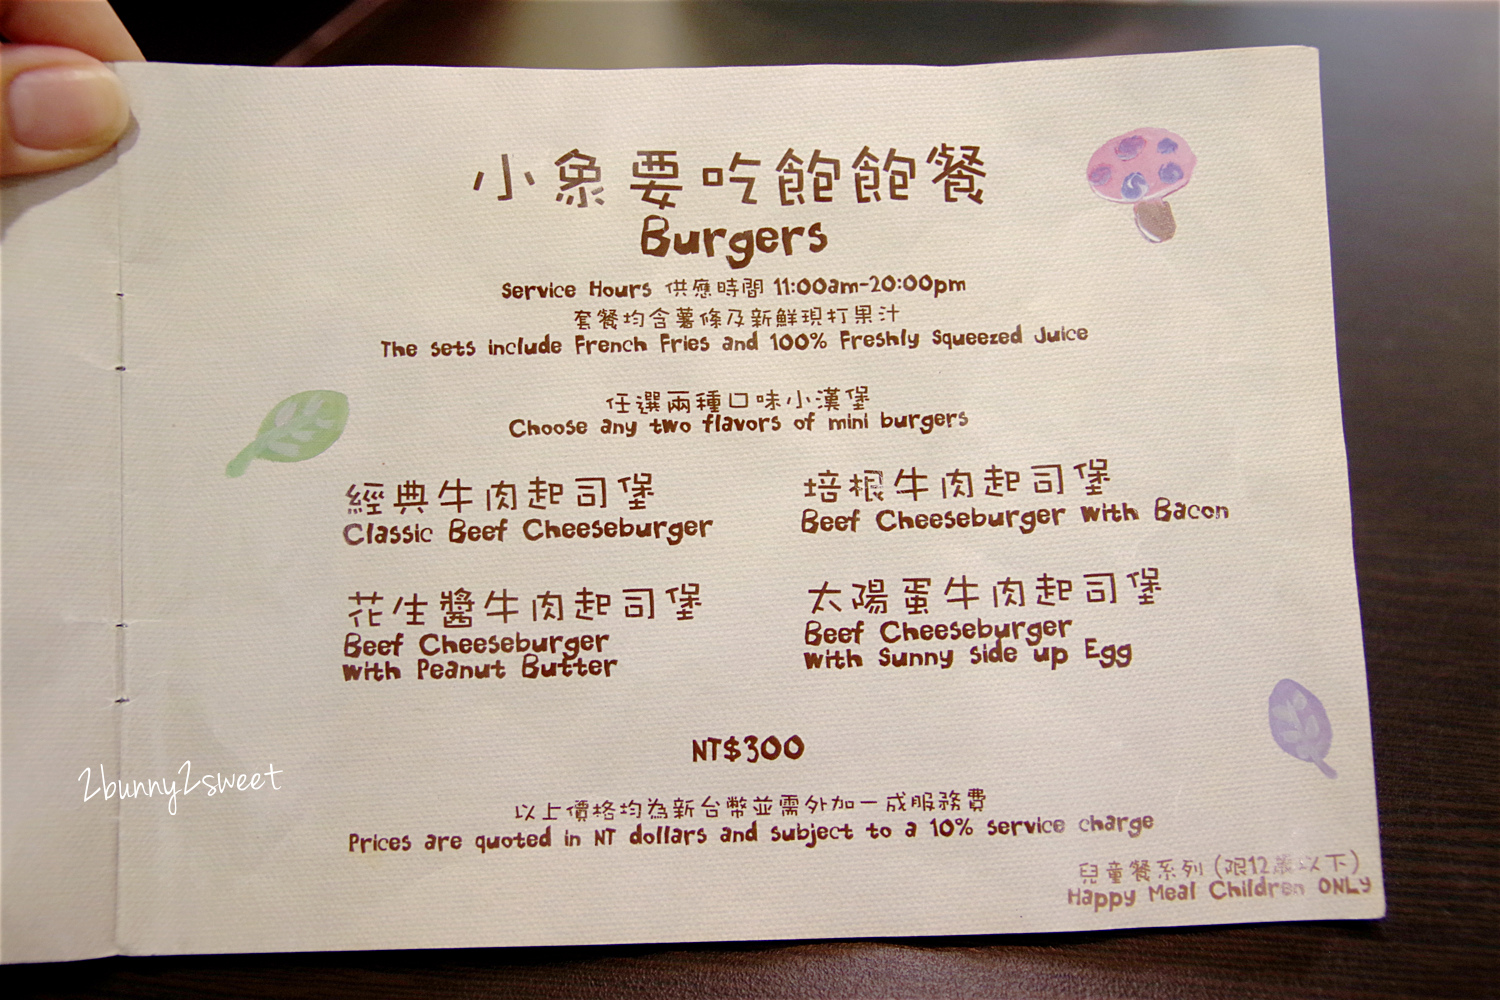 小象要吃飽飽餐
Burgers
Service Hours 供應時間 11:00am-20:00pm
套餐均含薯條及新鮮現打果汁
The sets include French Fries and 100% Freshly Squeezed Juice
任選兩種口味小漢堡
Choose any two flavors of mini burgers
經典牛肉起司堡
Classic Beef Cheeseburger
培根牛肉起司堡
Beef Cheeseburger with Bacon
花生醬牛肉起司堡
Beef Cheeseburger
with Peanut Butter
太陽蛋牛肉起司堡
Beef Cheeseburger
with Sunny side up Egg
NT$300
2bunny2sweet
以上價格均為新台幣並需外加一成服務費
Prices are quoted in NT dollars and subject to a 10% service charge
兒童餐系列 (限12歲以下)
Happy Meal Children ONLY